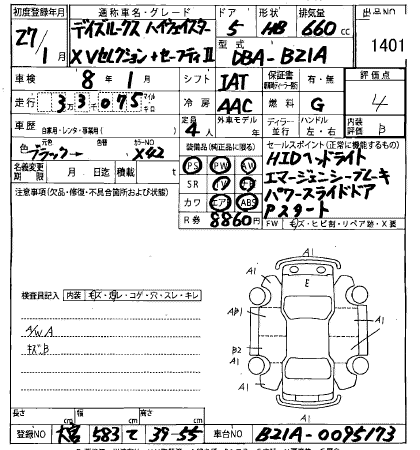 初度登録年月 通称車名・グレード ドア 形状 排気量 出品NO
27/1月 デイズルークス ハイウェイスター 5 HB 660cc 1401
XVセレクション+セーフティII 型式 DBA-B21A
車検 8年1月 シフト IAT 保証書 有・無 評価点
走行 33千075 マイル キロ 冷房 AAC 燃料 G 4
車歴 自家用・レンタ・事業用( ) 定員 4人 外車モデル 年 ディーラー 並行 ハンドル 左・右 内装評価 B
色 元色 ブラック 色替 カラーNO X42 装備品(純正品に限る) セールスポイント(正常に機能するもの)
名義変更期限 月 日迄 積載 t PS PW AV HIDヘッドライト
注意事項(欠品・修復・不具合箇所および状態) SR TV エマージェンシーブレーキ
カワ エアB ABS パワースライドドア
R券 8860円 Pスタート
FW キズ・ヒビ割・リペア跡・X要
検査員記入 内装 キズ・汚レ・コゲ・穴・スレ・キレ
A/W A
キズB
A1 A1 A1 E AB1 A1 B2 A1 A1 A1
長さ cm 幅 cm 高さ cm
登録NO 大宮 583 て 39-55 車台NO B21A-0095173